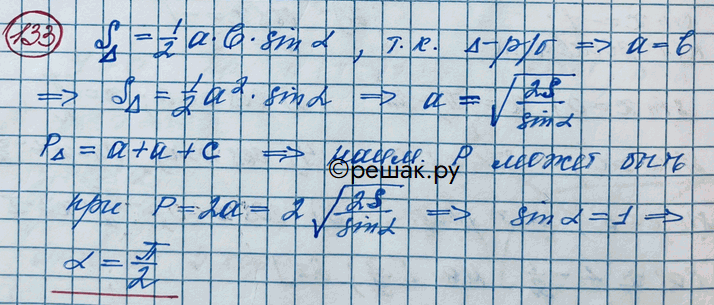 133 S_Δ = 1/2 a · b · sin α , т.к. Δ-р/б => a = b
=> S_Δ = 1/2 a² · sin α => a = √(2S/sin α)
P_Δ = a + a + c => наим. P может быть
©решак.ру
при P = 2a = 2√(2S/sin α) => sin α = 1 =>
α = π/2